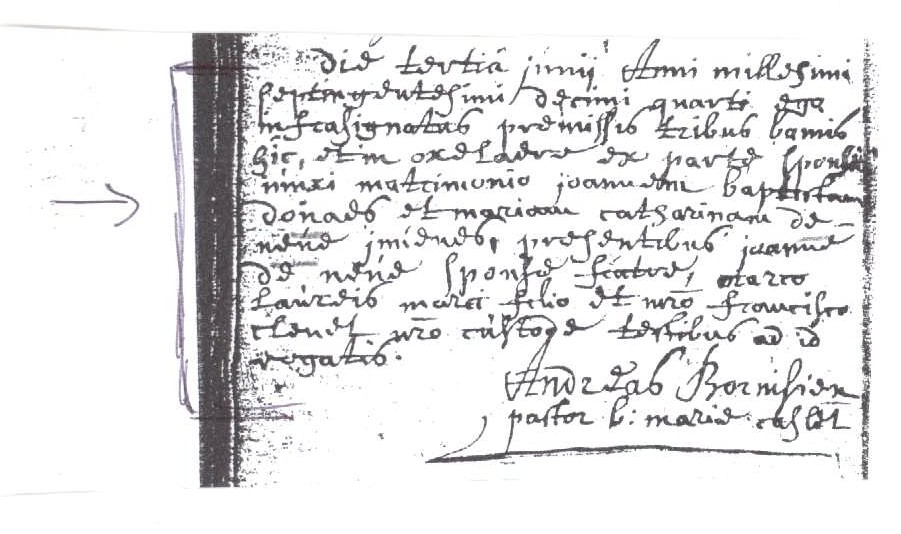 Die tertia junii Anni millesimi
septingentesimi decimi quarti ego
infrasignatus premissis tribus bannis
hic, et in oxelaere ex parte sponsi
iunxi matrimonio joannem baptistam
donaes et mariam catharinam de
neue jmienes, presentibus joanne
de neue sponse fratre, marco
laureis marci filio et mro francisco
clenet nro custode testibus ad id
rogatis.
Andreas Bornisien
pastor b: marie caslet